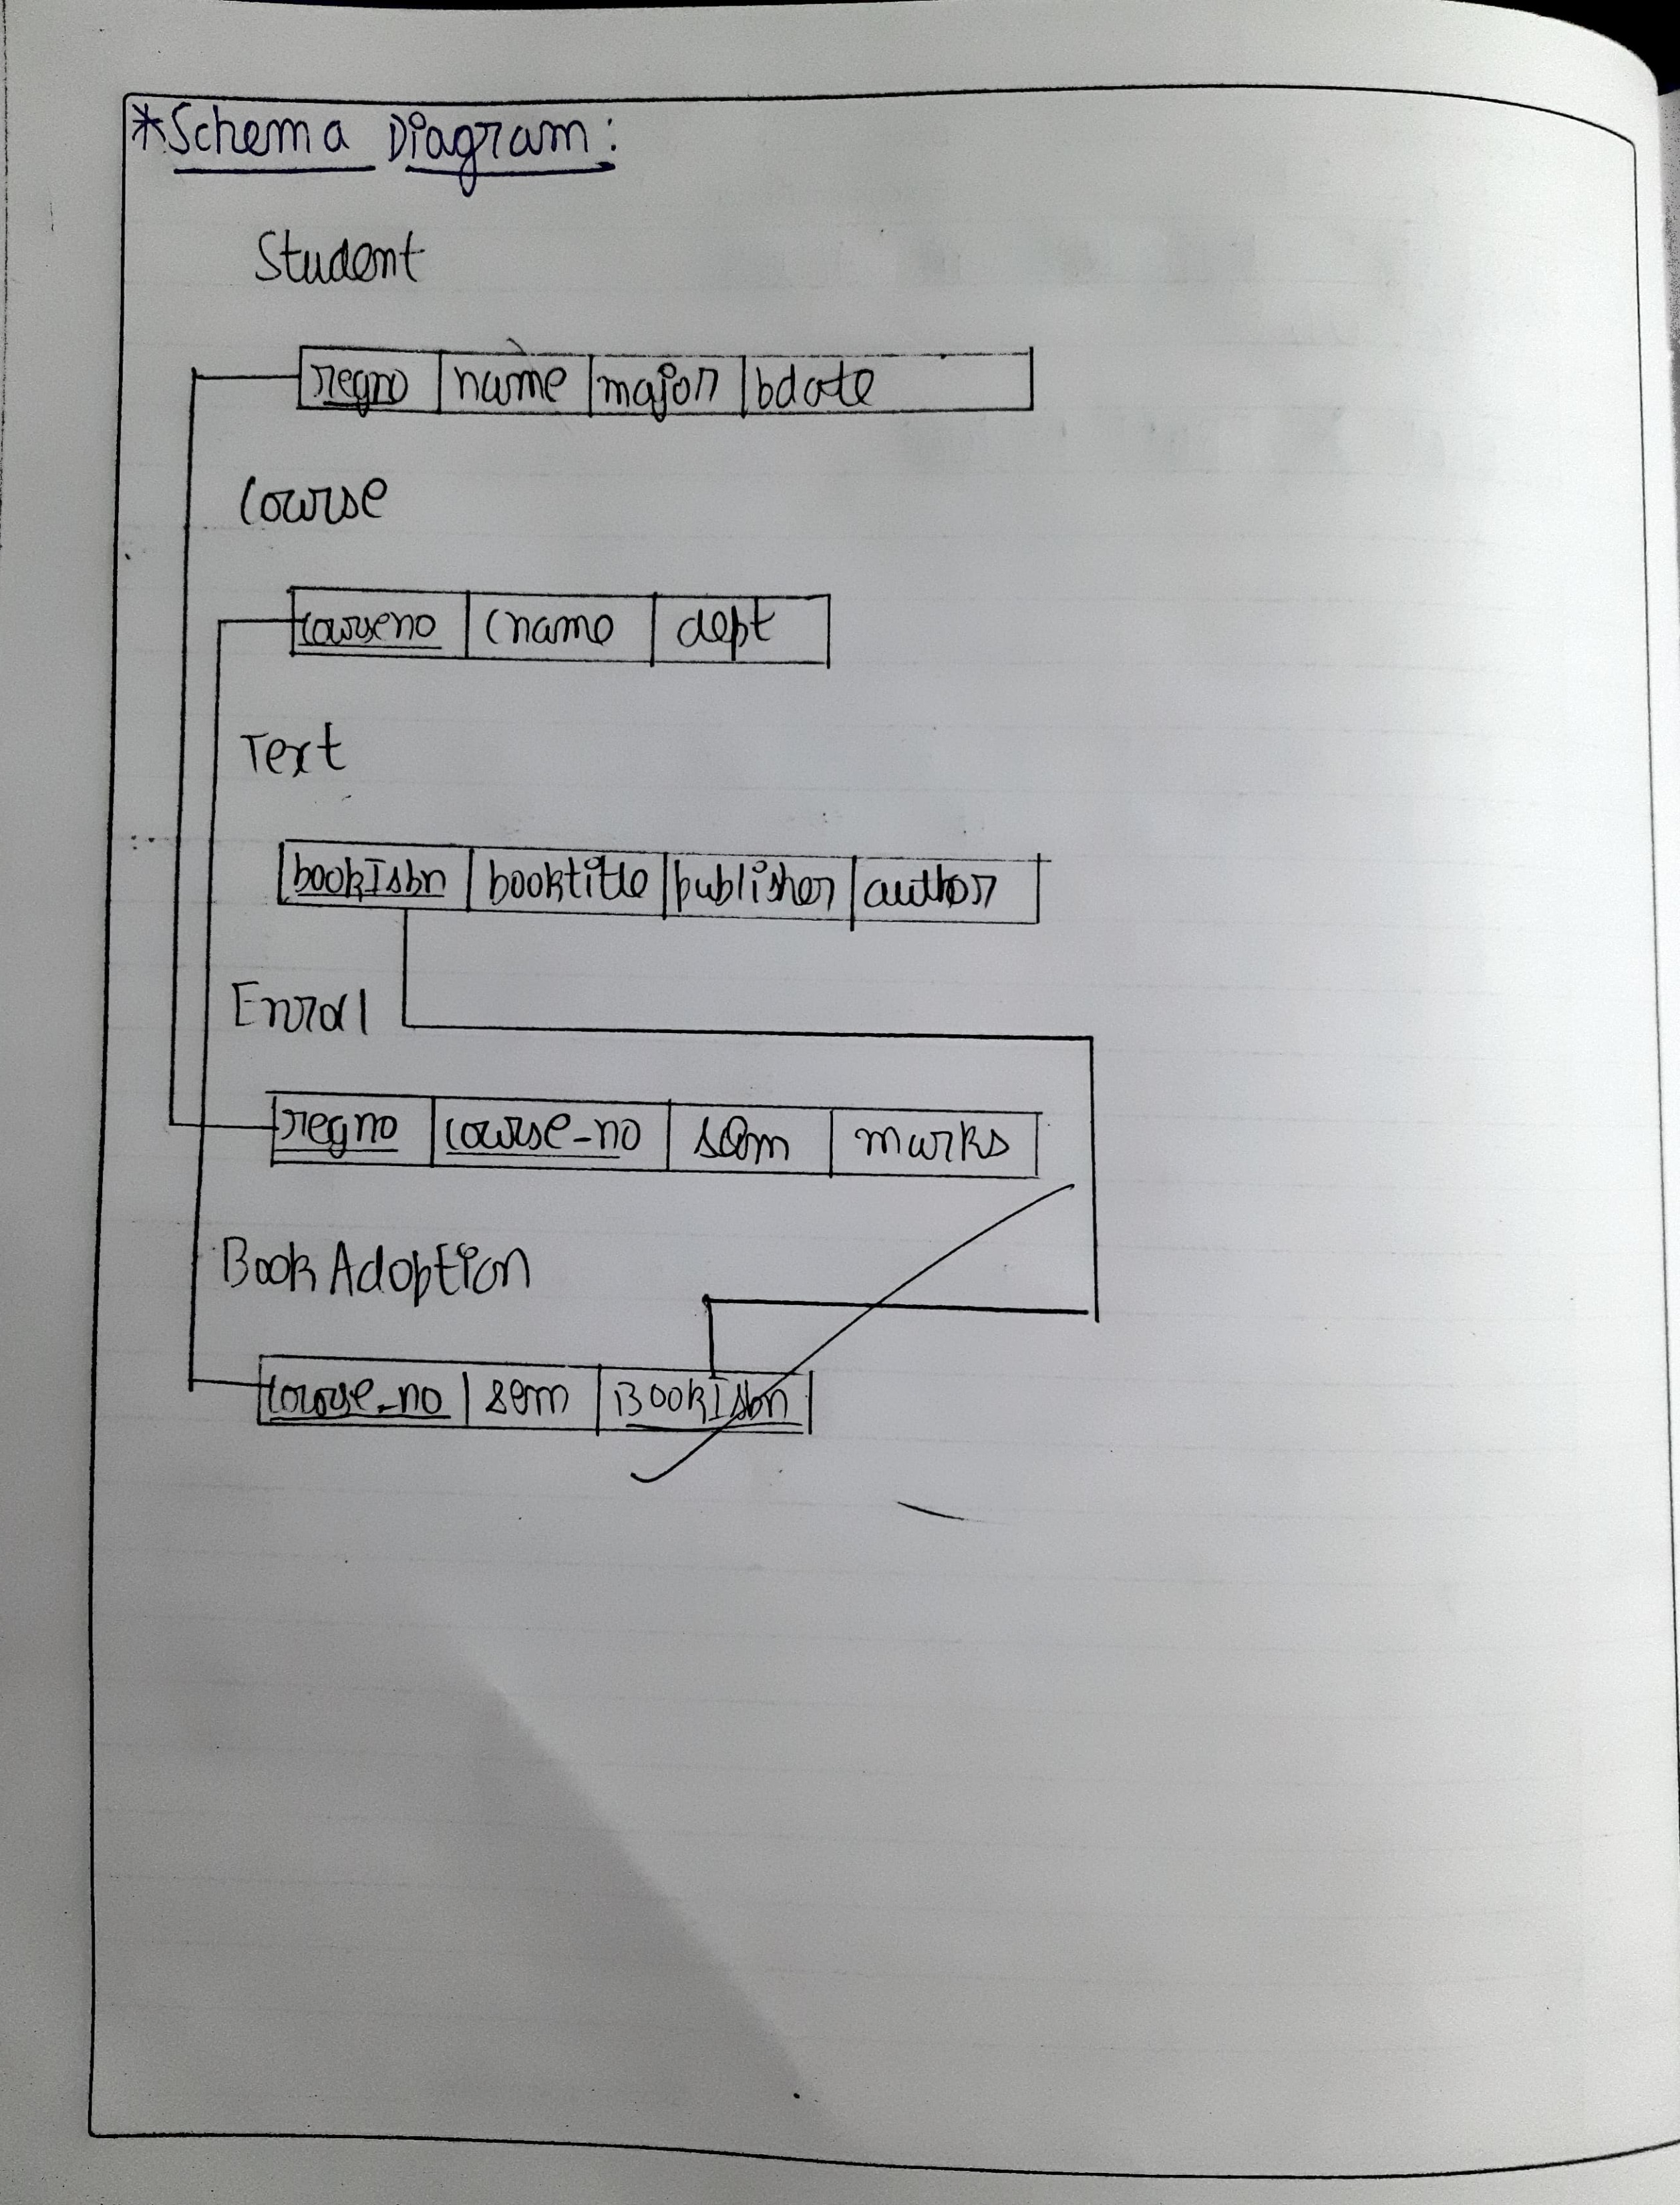 *Schema Diagram:
Student
regno name major bdate
Course
courseno cname dept
Text
bookIsbn booktitle publisher author
Enroll
regno course_no sem marks
Book Adoption
course_no sem BookIsbn